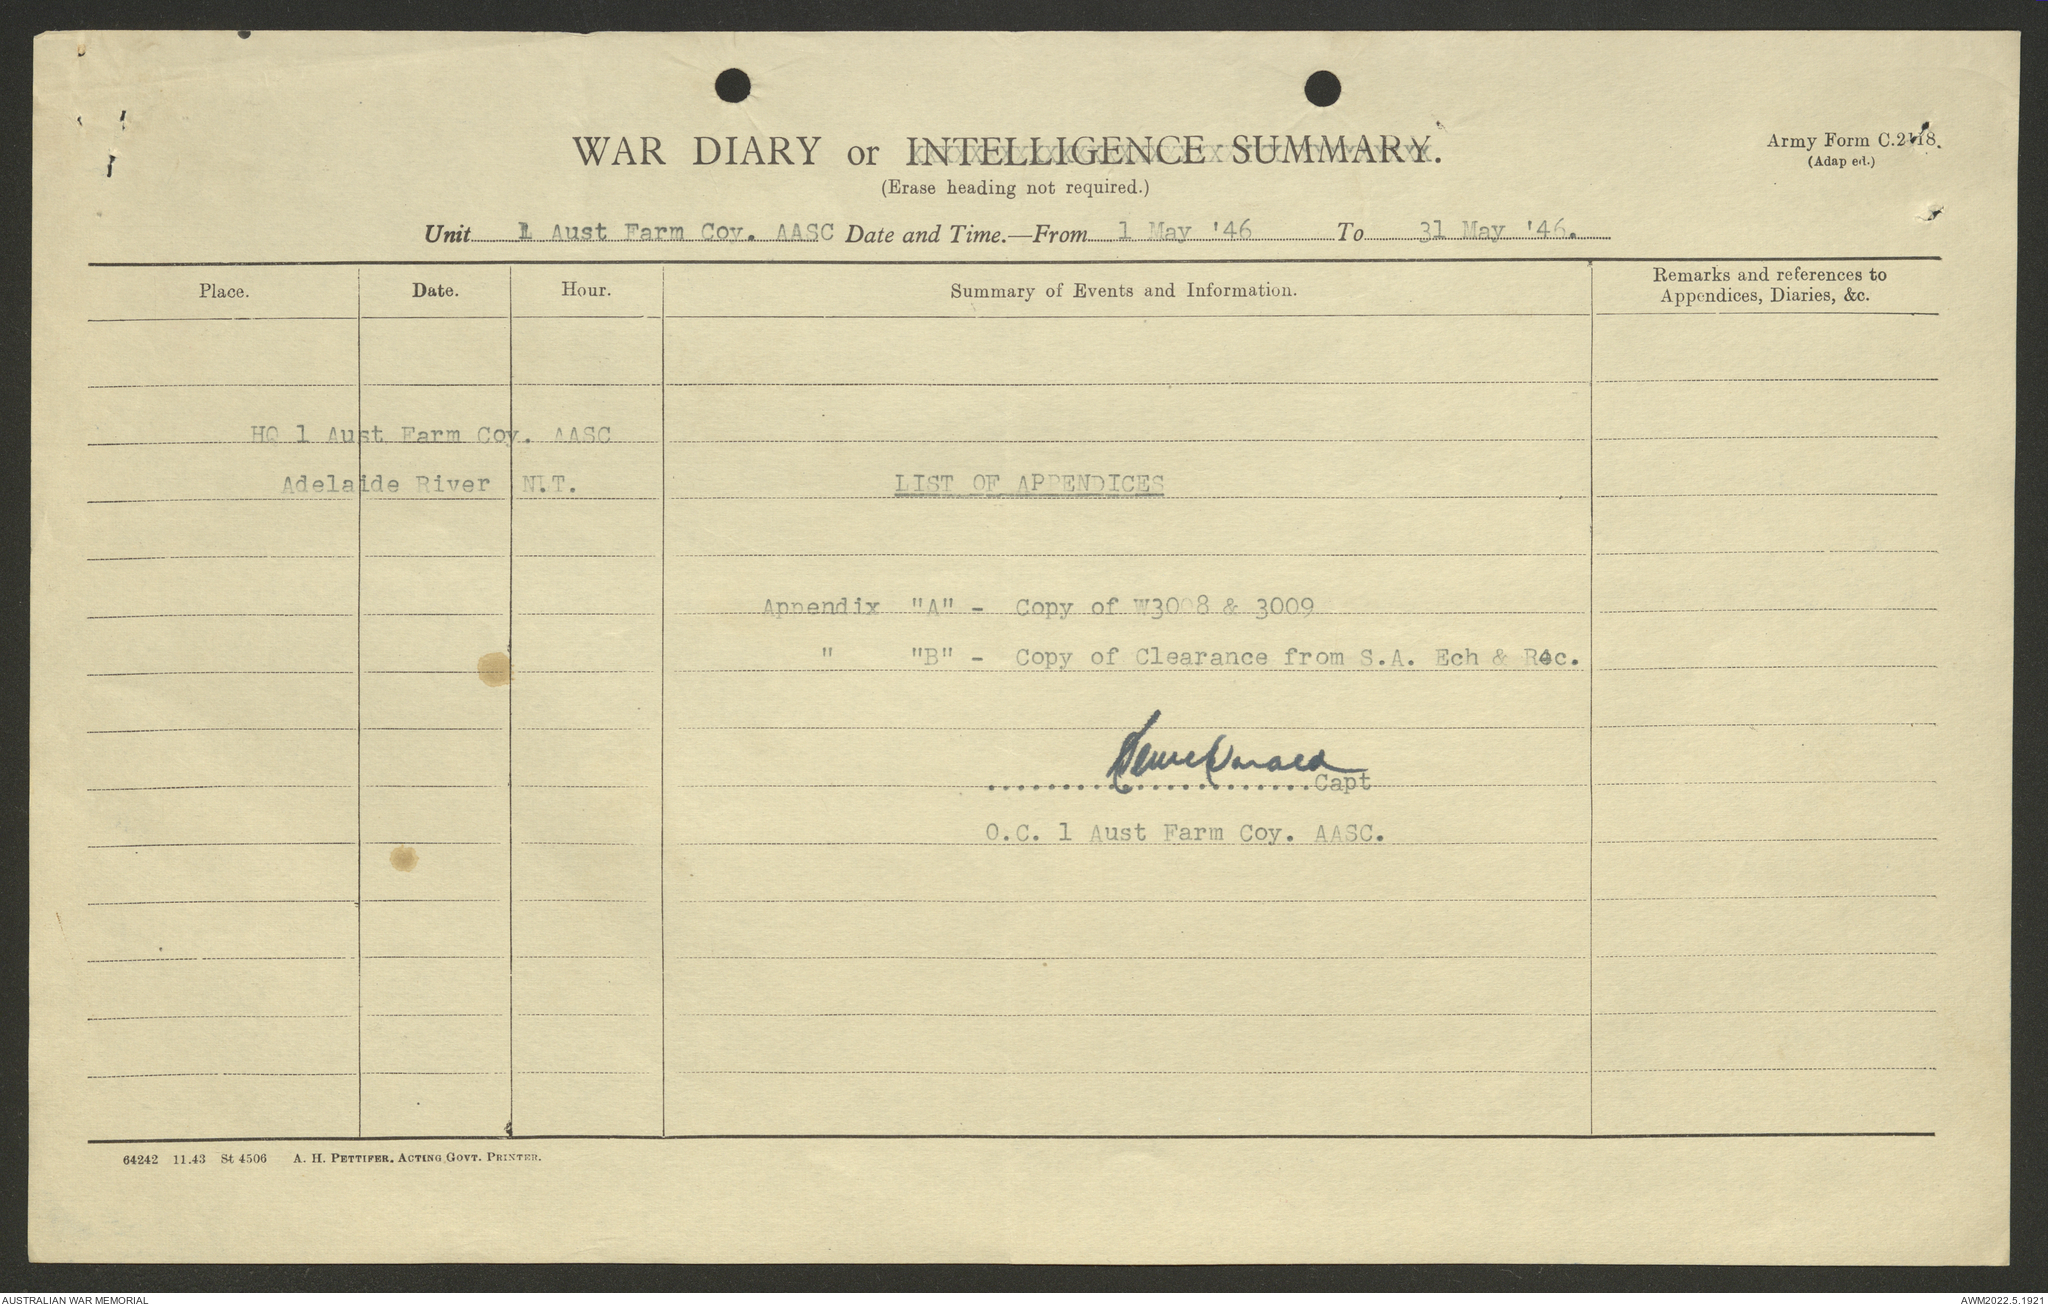 WAR DIARY or INTELLIGENCE SUMMARY.
Army Form C.2118.
(Adap ed.)
(Erase heading not required.)
Unit 1 Aust Farm Coy. AASC Date and Time.—From 1 May '46 To 31 May '46.
Place. Date. Hour. Summary of Events and Information. Remarks and references to
Appendices, Diaries, &c.
HQ 1 Aust Farm Coy. AASC
Adelaide River N.T. LIST OF APPENDICES
Appendix "A" - Copy of W3008 & 3009
" "B" - Copy of Clearance from S.A. Ech & Rec.
Capt
O.C. 1 Aust Farm Coy. AASC.
64242 11.43 St 4506 A. H. PETTIFER. ACTING GOVT. PRINTER.
AUSTRALIAN WAR MEMORIAL
AWM2022.5.1921